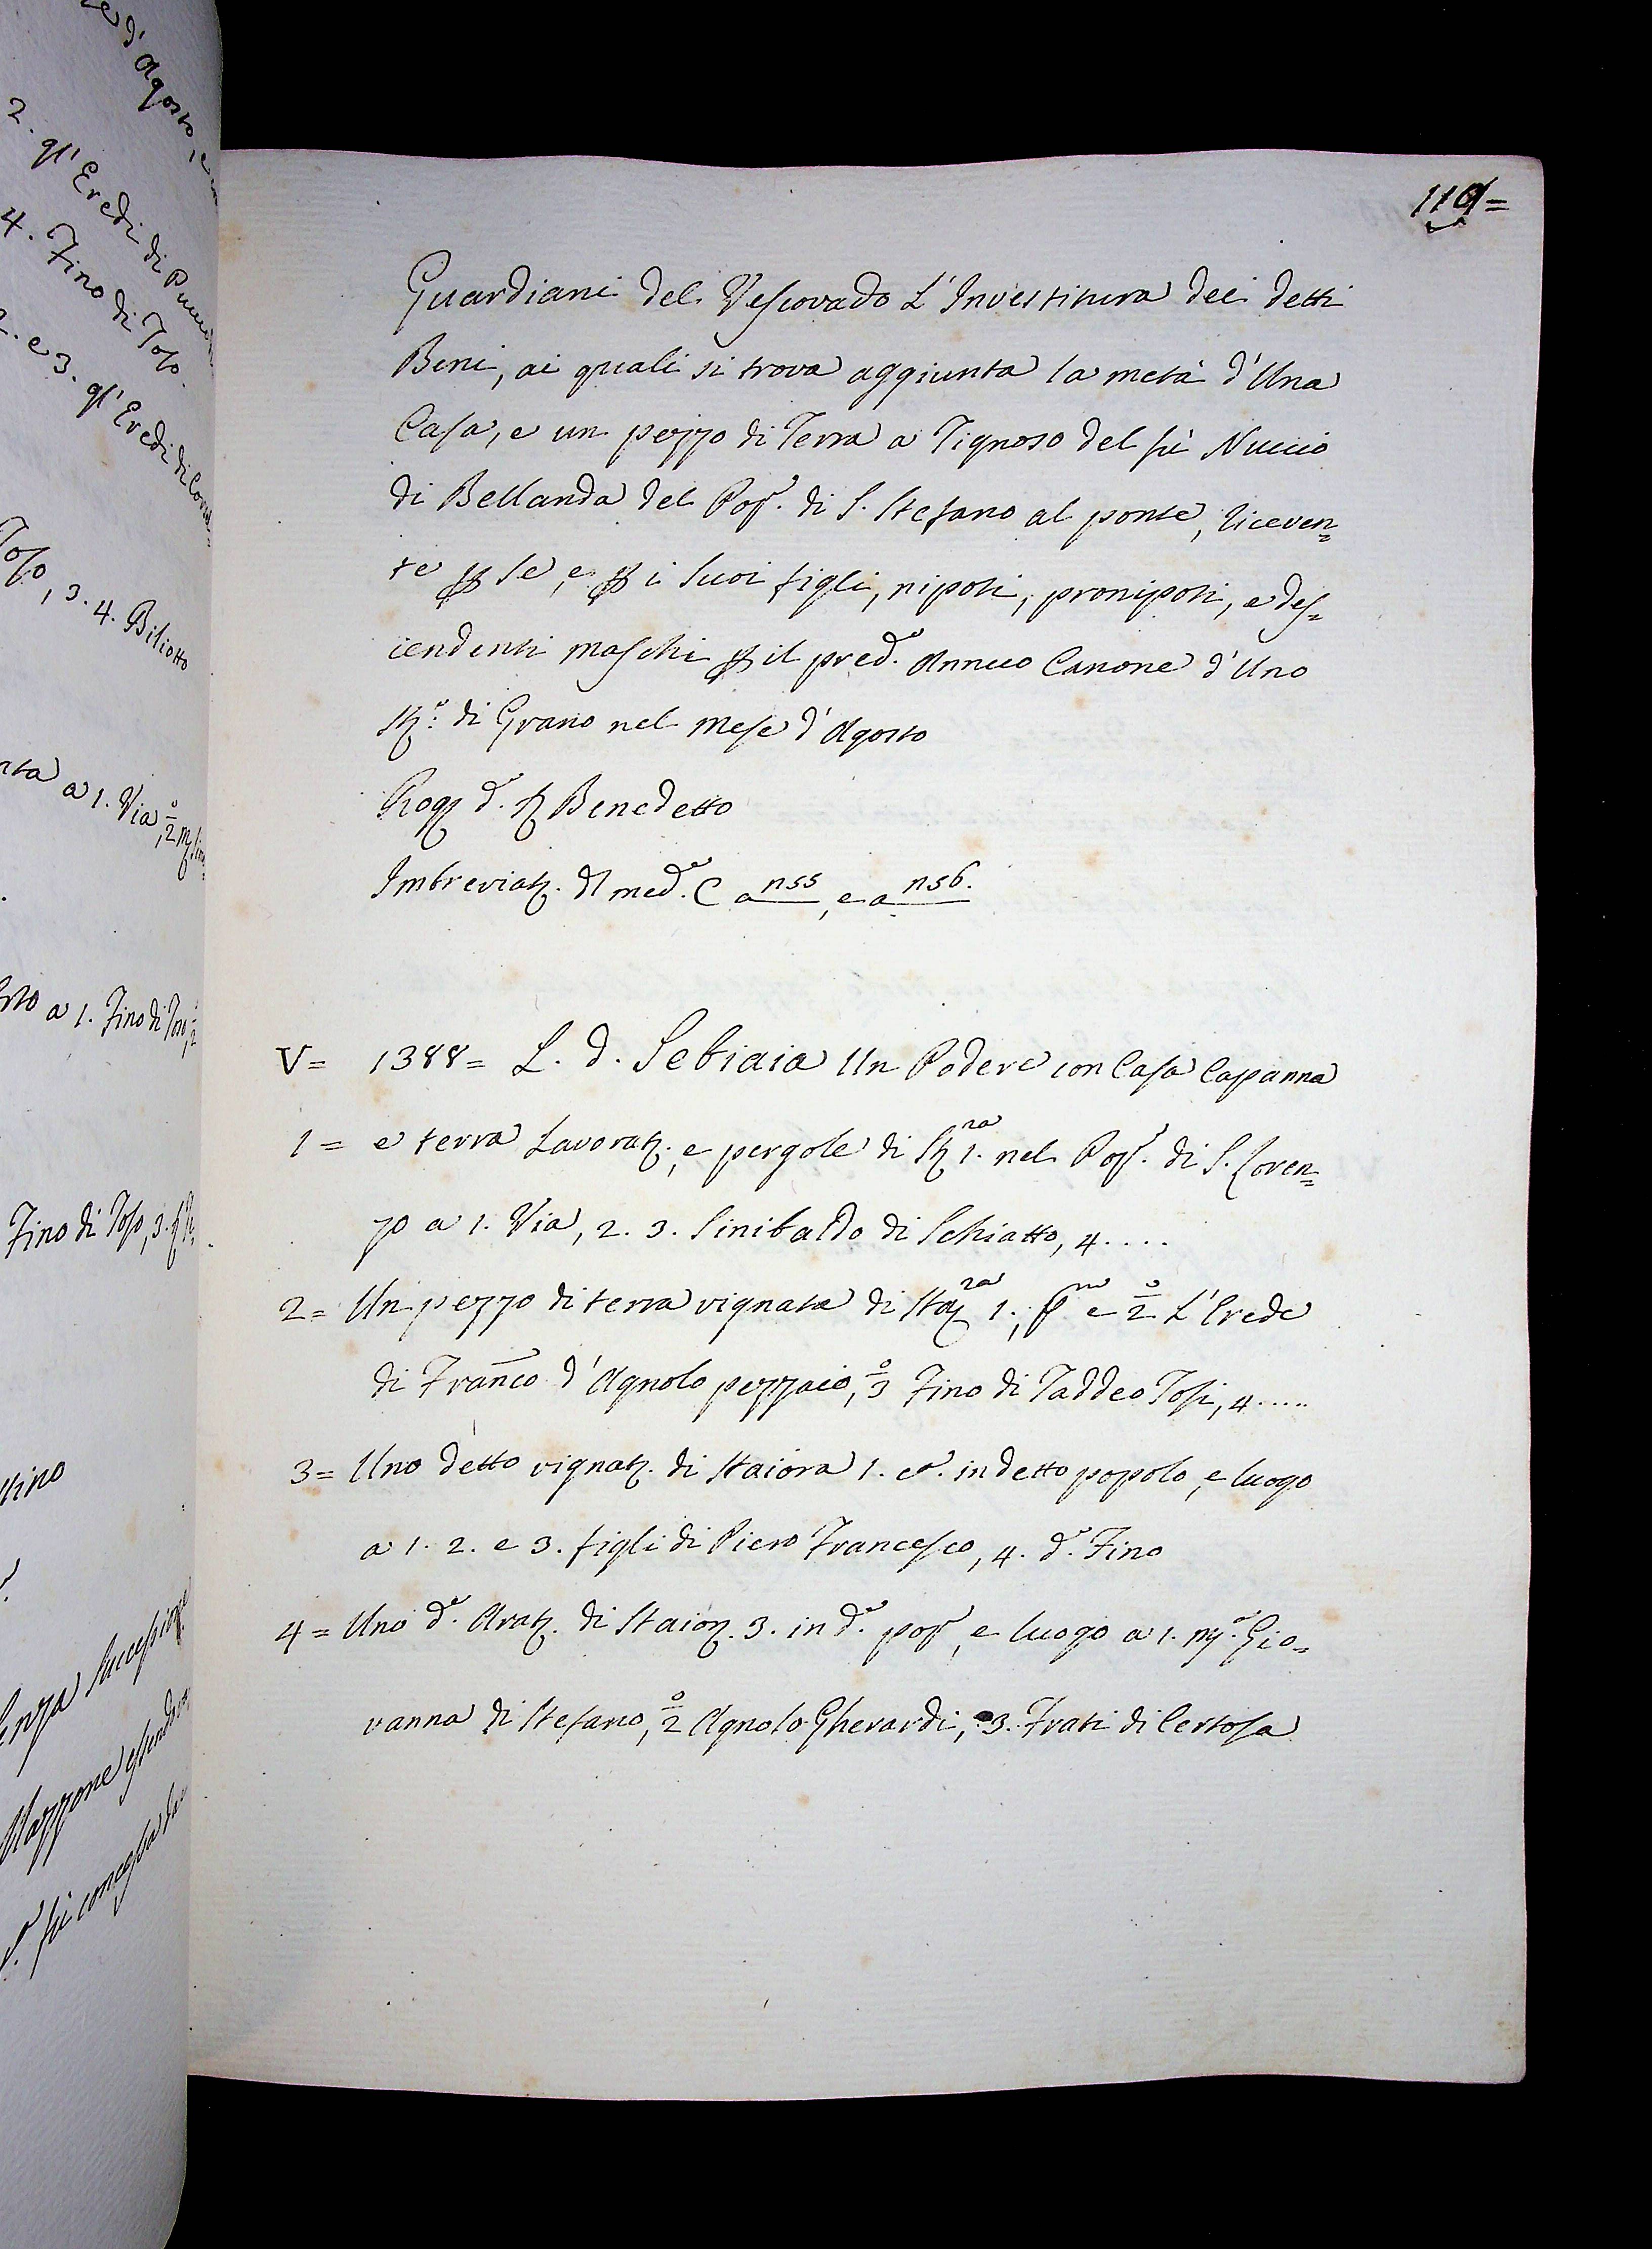 e d'Agosto, e
2. gl'Eredi di
4. Fino di Toso.
2. e 3. gl'Eredi di
Toso, 3. 4. Biliotto
a 1. Via, 2
a 1. Fino di Toso, 2
Fino di Toso, 3.
senza successione
Mazzone essendo
fù concessa
119=
Guardiani del Vescovado L'Investitura dei detti
Beni, ai quali si trova aggiunta la metà d'Una
Casa, e un pezzo di Terra a Tignoso del fù Nuccio
di Bellanda del Pop.º di S. Stefano al ponte, riceven=
te p se, e p i suoi figli, nipoti, pronipoti, e des=
cendenti maschi p il pred.º Annuo Canone d'Uno
St.º di Grano nel mese d'Agosto
Rog d.º S Benedetto
Imbreviat. dl med.º C a n55, e a n56.
V= 1388= L. d. Sebiaia Un Podere con Casa Capanna
1= e terra Lavorat., e pergole di St.ra 1. nel Pop.º di S. Loren=
zo a 1. Via, 2. 3. Sinibaldo di Schiatto, 4....
2= Un pezzo di terra vignata di Sta.ra 1., p.mo e 2.º L'Erede
di Franco d'Agnolo pezzaio, 3.º Fino di Taddeo Tosi, 4.....
3= Uno detto vignat. di Staiora 1. e in detto popolo, e luogo
a 1. 2. e 3. figli di Piero Francesco, 4. d.º Fino
4= Uno d.º Arat. di Staior. 3. in d.º pop.º, e luogo a 1. M.ª Gio=
vanna di Stefano, 2.º Agnolo Gherardi, 3. Frati di Certosa